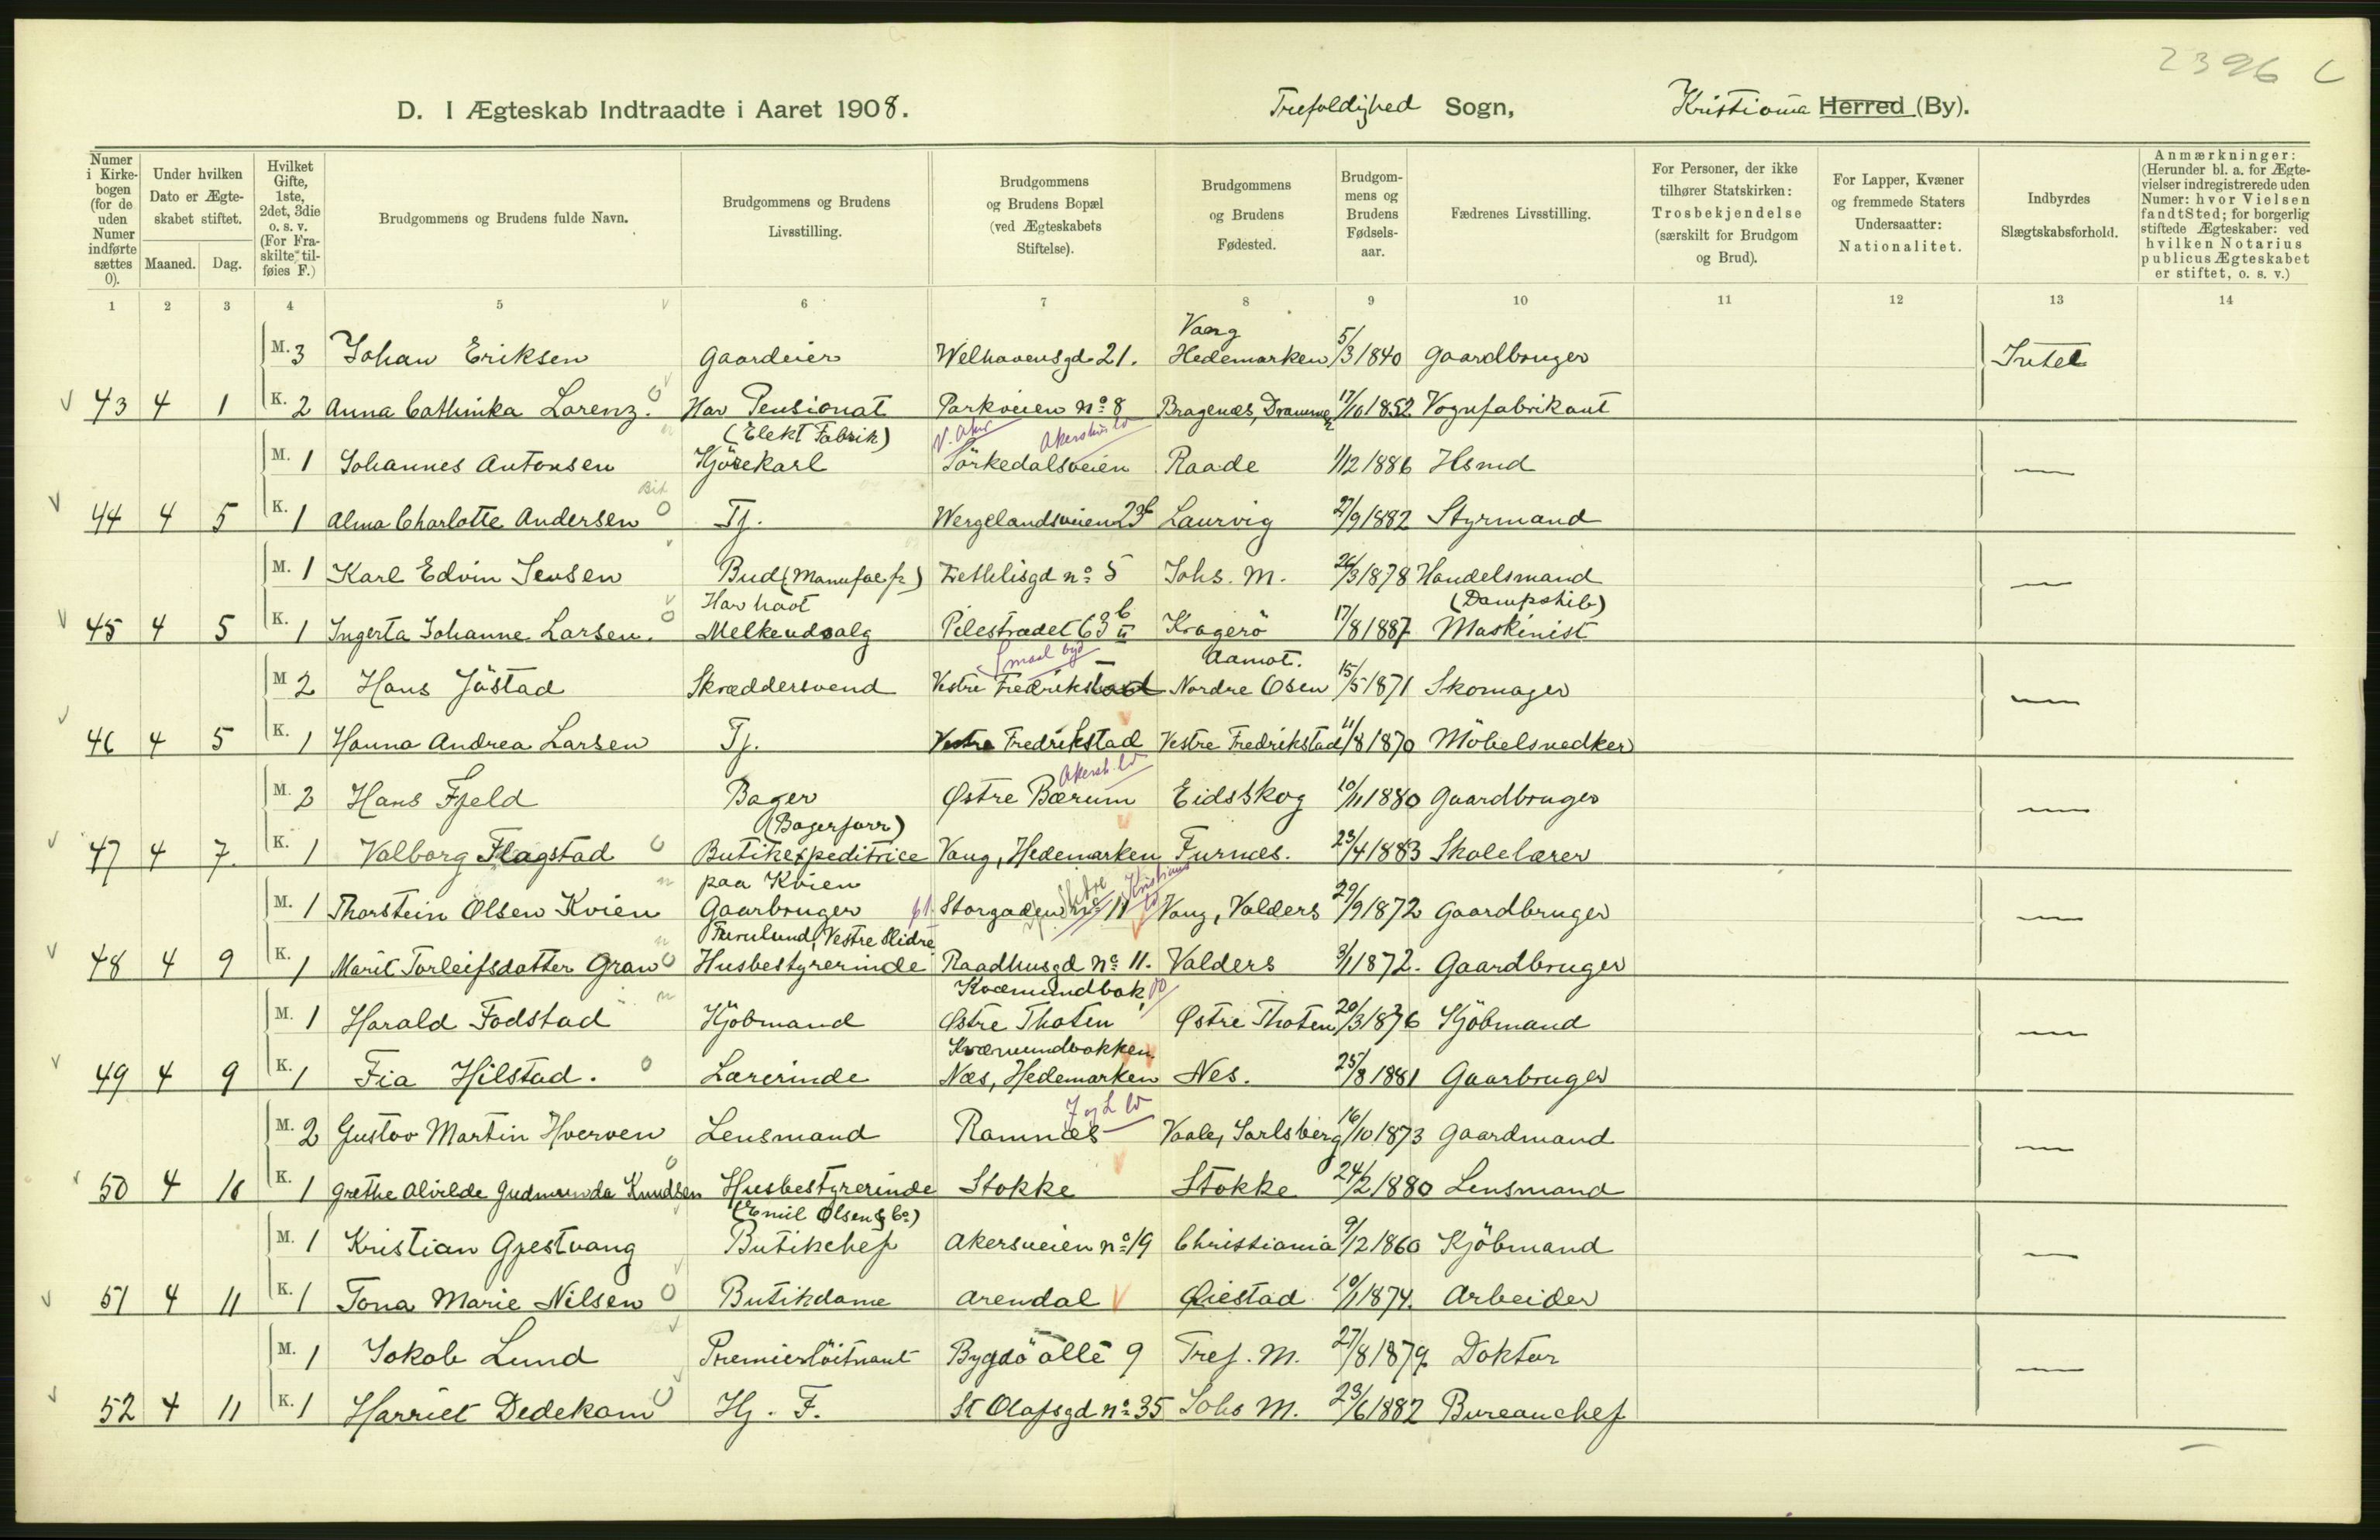 2396
D. I Ægteskab Indtraadte i Aaret 1908. Trefoldighed Sogn, Kristiania Herred (By).
Numer i Kirkebogen (for de uden Numer indførte sættes 0).
Under hvilken Dato er Ægteskabet stiftet.
Maaned. Dag.
Hvilket Gifte, 1ste, 2det, 3die o. s. v. (For Fraskilte tilføies F.)
Brudgommens og Brudens fulde Navn.
Brudgommens og Brudens Livsstilling.
Brudgommens og Brudens Bopæl (ved Ægteskabets Stiftelse).
Brudgommens og Brudens Fødested.
Brudgommens og Brudens Fødselsaar.
Fædrenes Livsstilling.
For Personer, der ikke tilhører Statskirken: Trosbekjendelse (særskilt for Brudgom og Brud).
For Lapper, Kvæner og fremmede Staters Undersaatter: Nationalitet.
Indbyrdes Slægtskabsforhold.
Anmærkninger: (Herunder bl. a. for Ægtevielser indregistrerede uden Numer: hvor Vielsen fandt Sted; for borgerlig stiftede Ægteskaber: ved hvilken Notarius publicus Ægteskabet er stiftet, o. s. v.)
1 2 3 4 5 6 7 8 9 10 11 12 13 14
M. 3 Johan Eriksen Gaardeier Welhavensgd 21. Vang Hedemarken 5/3 1840 Gaardbruger Intet
43 4 1 K. 2 Anna Cathinka Lorenz. Har Pensionat Parkveien No 8 Bragenæs, Drammen 17/10 1852 Vognfabrikant
M. 1 Johannes Antonsen (Elekt Fabrik) Kjörekarl V. Aker Akershus Sörkedalsveien Raade 1/12 1886 Hsmd —
44 4 5 K. 1 Alma Charlotte Andersen Tj. Wergelandsveien 23b Laurvig 27/9 1882 Styrmand
M. 1 Karl Edvin Jensen Bud (Manufac fr) Zethlisgd no 5 Johs. M. 26/3 1878 Handelsmand —
45 4 5 K. 1 Ingerta Johanne Larsen. Har havt Melkeudsalg Pilestrædet 63b II Kragerö 17/8 1887 (Dampskib) Maskinist
M 2 Hans Jöstad Skræddersvend Smaal Vestre Fredrikstad Aamot. Nordre Osen 15/5 1871 Skomager —
46 4 5 K. 1 Hanna Andrea Larsen Tj. Vestre Fredrikstad Vestre Fredrikstad 11/8 1870 Möbelsnedker
M. 2 Hans Fjeld Bager Akersh. Østre Bærum Eidsskog 10/11 1880 Gaardbruger —
47 4 7. K. 1 Valborg Flagstad (Bagerforr) Butikexpeditrice Vang, Hedemarken Furnæs. 23/4 1883 Skolelærer
M. 1 Thorstein Olsen Kvien paa Kvien Gaarbruger Storgaden no 11 Vang, Valders 29/9 1872 Gaardbruger —
48 4 9 K. 1 Marit Torleifsdatter Grav Furulund, Vestre Slidre Husbestyrerinde Raadhusgd No 11. Valders 3/1 1872. Gaardbruger
M. 1 Harald Fodstad Kjöbmand Kværnundbak, Østre Thoten Østre Thoten 20/3 1876 Kjöbmand —
49 4 9 K. 1 Fia Hilstad. Lærerinde Kværnundbakken Næs, Hedemarken Nes. 25/8 1881 Gaarbruger
M. 2 Gustav Martin Hverven Lensmand J og L Ramnæs Vaale, Jarlsberg 16/10 1873 Gaardmand —
50 4 10 K. 1 Grethe Alvilde Gudmunda Knudsen Husbestyrerinde Stokke Stokke 24/2 1880 Lensmand
M. 1 Kristian Gjestvang (Emil Olsen & Co) Butikchef Akersveien no 19 Christiania 9/12 1860 Kjöbmand —
51 4 11 K. 1 Tona Marie Nilsen Butikdame Arendal Øiestad 10/1 1874. Arbeider
M. 1 Jakob Lund Premierlöitnant Bygdö allé 9 Tref. M. 27/8 1879 Doktor —
52 4 11 K. 1 Harriet Dedekam Hj. F. St Olafsgd no 35 Johs M. 23/6 1882 Bureauchef